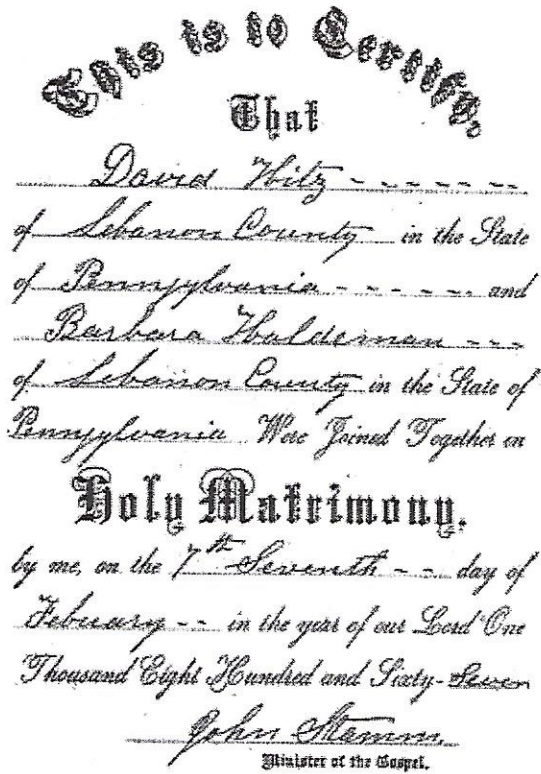 This is to Certify,
That
David Hitz - - - - - -
of Lebanon County in the State
of Pennsylvania - - - - - - and
Barbara Haldeman - - -
of Lebanon County in the State of
Pennsylvania Were Joined Together in
Holy Matrimony,
by me, on the 7th Seventh - - day of
Febuary - - in the year of our Lord One
Thousand Eight Hundred and Sixty-Seven
John Stamm
Minister of the Gospel.